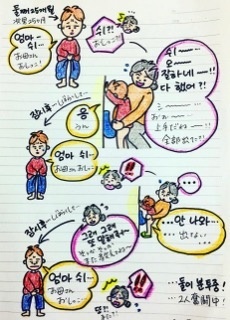 둘째 25개월
次男25か月
엄마-
쉬-
お母さん
おしっこ!
쉬?!
おしっこ?!
쉬 ㅡ~~
오 ㅡ~~
잘하네 ㅡ!!
다 했어?!
シー~~~
おぉー~~
上手だね ㅡ!!
全部出た?!
응
うん
잠시후…しばらくして…
엄마 쉬…
お母さん おし…
!!
…
…안 나와…
…出ない…
잠시후…しばらくして…
그래 그래
또
엄마 쉬…
お母さん
おしっこ…
또?!
!!
…둘이 분투중!
…2人奮闘中!